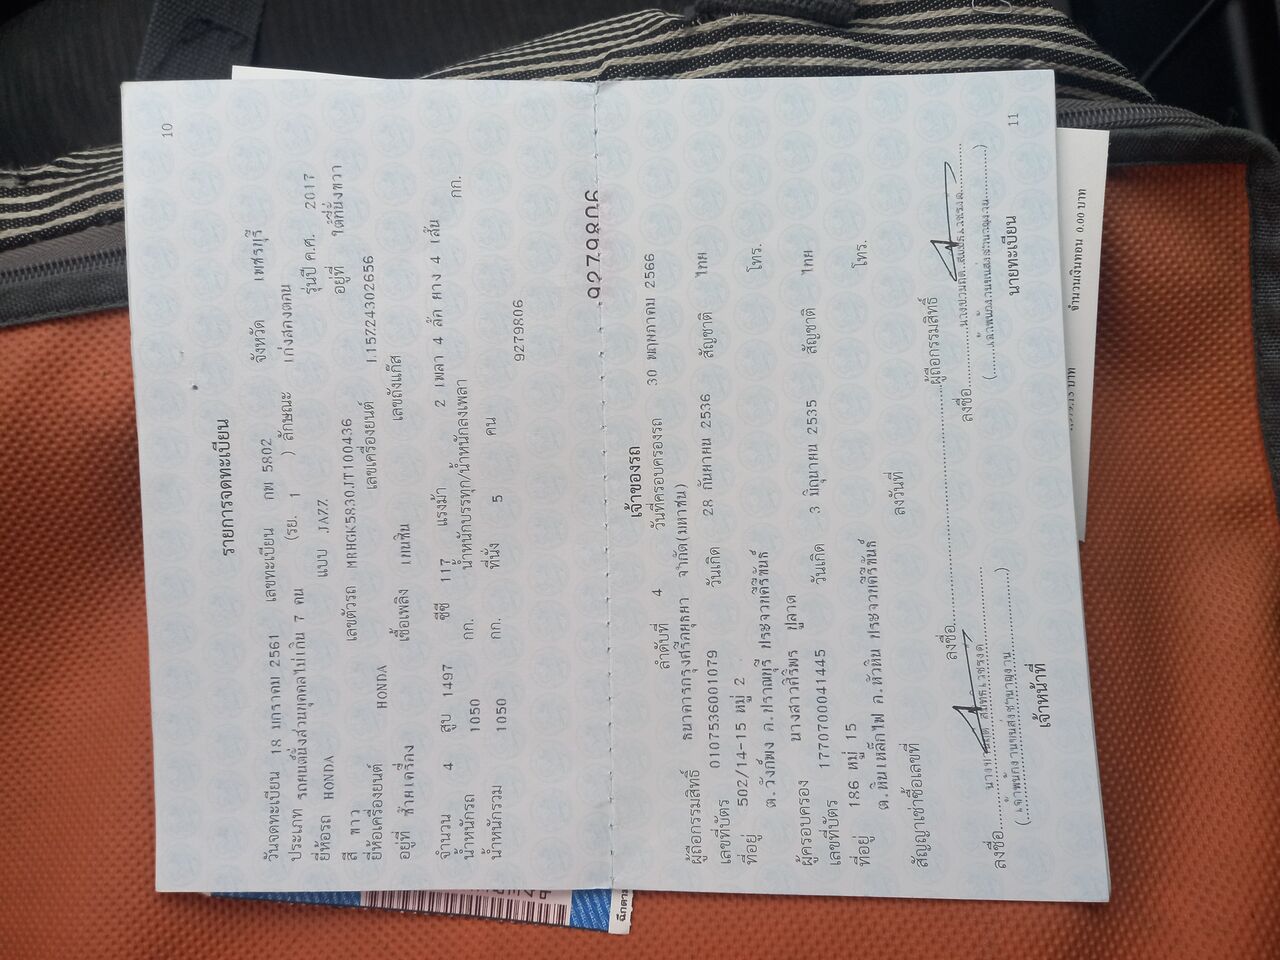 10
รายการจดทะเบียน
วันจดทะเบียน 18 มกราคม 2561 เลขทะเบียน กพ 5802 จังหวัด เพชรบุรี
ประเภท รถยนต์นั่งส่วนบุคคลไม่เกิน 7 คน (รย. 1 ) ลักษณะ เก๋งสองตอน
ยี่ห้อรถ HONDA แบบ JAZZ รุ่นปี ค.ศ. 2017
สี ขาว เลขตัวรถ MRHGK5830JT100436 อยู่ที่ ใต้ที่นั่งขวา
ยี่ห้อเครื่องยนต์ HONDA เลขเครื่องยนต์ L15Z24302656
อยู่ที่ ซ้ายเครื่อง เชื้อเพลิง เบนซิน เลขถังแก๊ส
จำนวน 4 สูบ 1497 ซีซี 117 แรงม้า 2 เพลา 4 ล้อ ยาง 4 เส้น
น้ำหนักรถ 1050 กก. น้ำหนักบรรทุก/น้ำหนักลงเพลา กก.
น้ำหนักรวม 1050 กก. ที่นั่ง 5 คน
9279806
9279806
เจ้าของรถ
ลำดับที่ 4 วันที่ครอบครองรถ 30 พฤษภาคม 2566
ผู้ถือกรรมสิทธิ์ ธนาคารกรุงศรีอยุธยา จำกัด(มหาชน)
เลขที่บัตร 0107536001079 วันเกิด 28 กันยายน 2536 สัญชาติ ไทย
ที่อยู่ 502/14-15 หมู่ 2
ต.วังก์พง อ.ปราณบุรี ประจวบคีรีขันธ์ โทร.
ผู้ครอบครอง นางสาวศิริพร ปูลาด
เลขที่บัตร 1770700041445 วันเกิด 3 มิถุนายน 2535 สัญชาติ ไทย
ที่อยู่ 186 หมู่ 15
ต.หินเหล็กไฟ อ.หัวหิน ประจวบคีรีขันธ์ โทร.
สัญญาเช่าซื้อเลขที่ ลงวันที่
ลงชื่อ ผู้ถือกรรมสิทธิ์
ลงชื่อ ลงชื่อ
(เจ้าพนักงานขนส่งชำนาญงาน) (เจ้าพนักงานขนส่งชำนาญงาน)
เจ้าหน้าที่ นายทะเบียน
11
บาท จำนวนเงินทอน 0.00 บาท